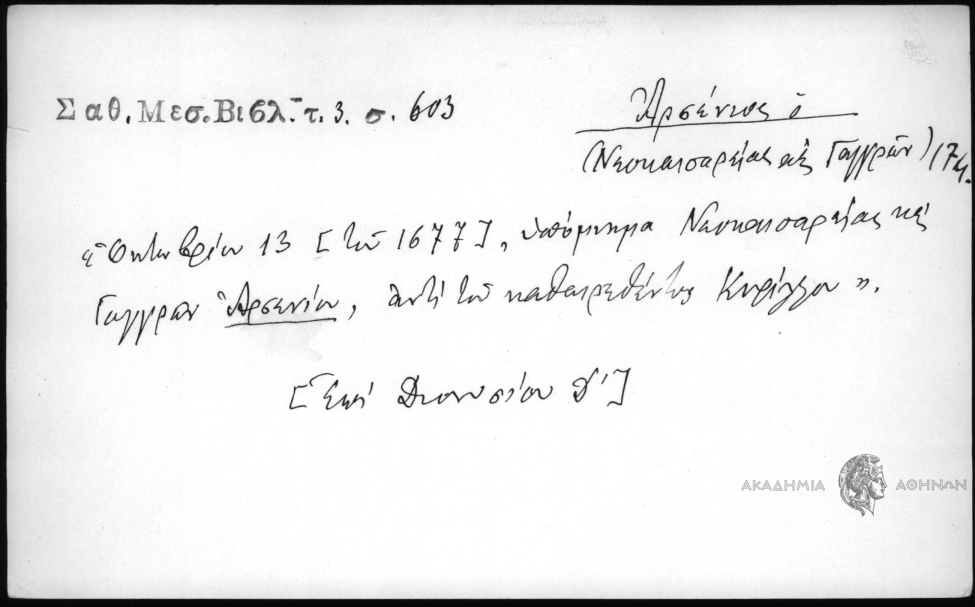 Σαθ. Μεσ. Βιβλ. τ. 3. σ. 603
Ἀρσένιος ὁ
(Νεοκαισαρείας καὶ Γαγγρῶν) 174.
« Ὀκτωβρίου 13 [τοῦ 1677], ὑπόμνημα Νεοκαισαρείας καὶ
Γαγγρῶν Ἀρσενίου, ἀντὶ τοῦ καθαιρεθέντος Κυρίλλου ».
[Ἐπὶ Διονυσίου Δ']
ΑΚΑΔΗΜΙΑ ΑΘΗΝΩΝ